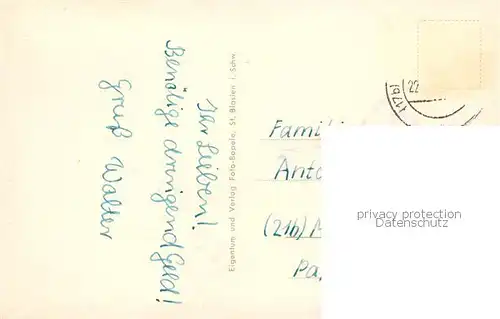 Ihr Lieben!
Benötige dringend Geld!
Gruß Walter
Eigentum und Verlag Foto-Bopele, St. Blasien i. Schw.
22
Famili
Anto
(21b)
Pa
privacy protection
Datenschutz